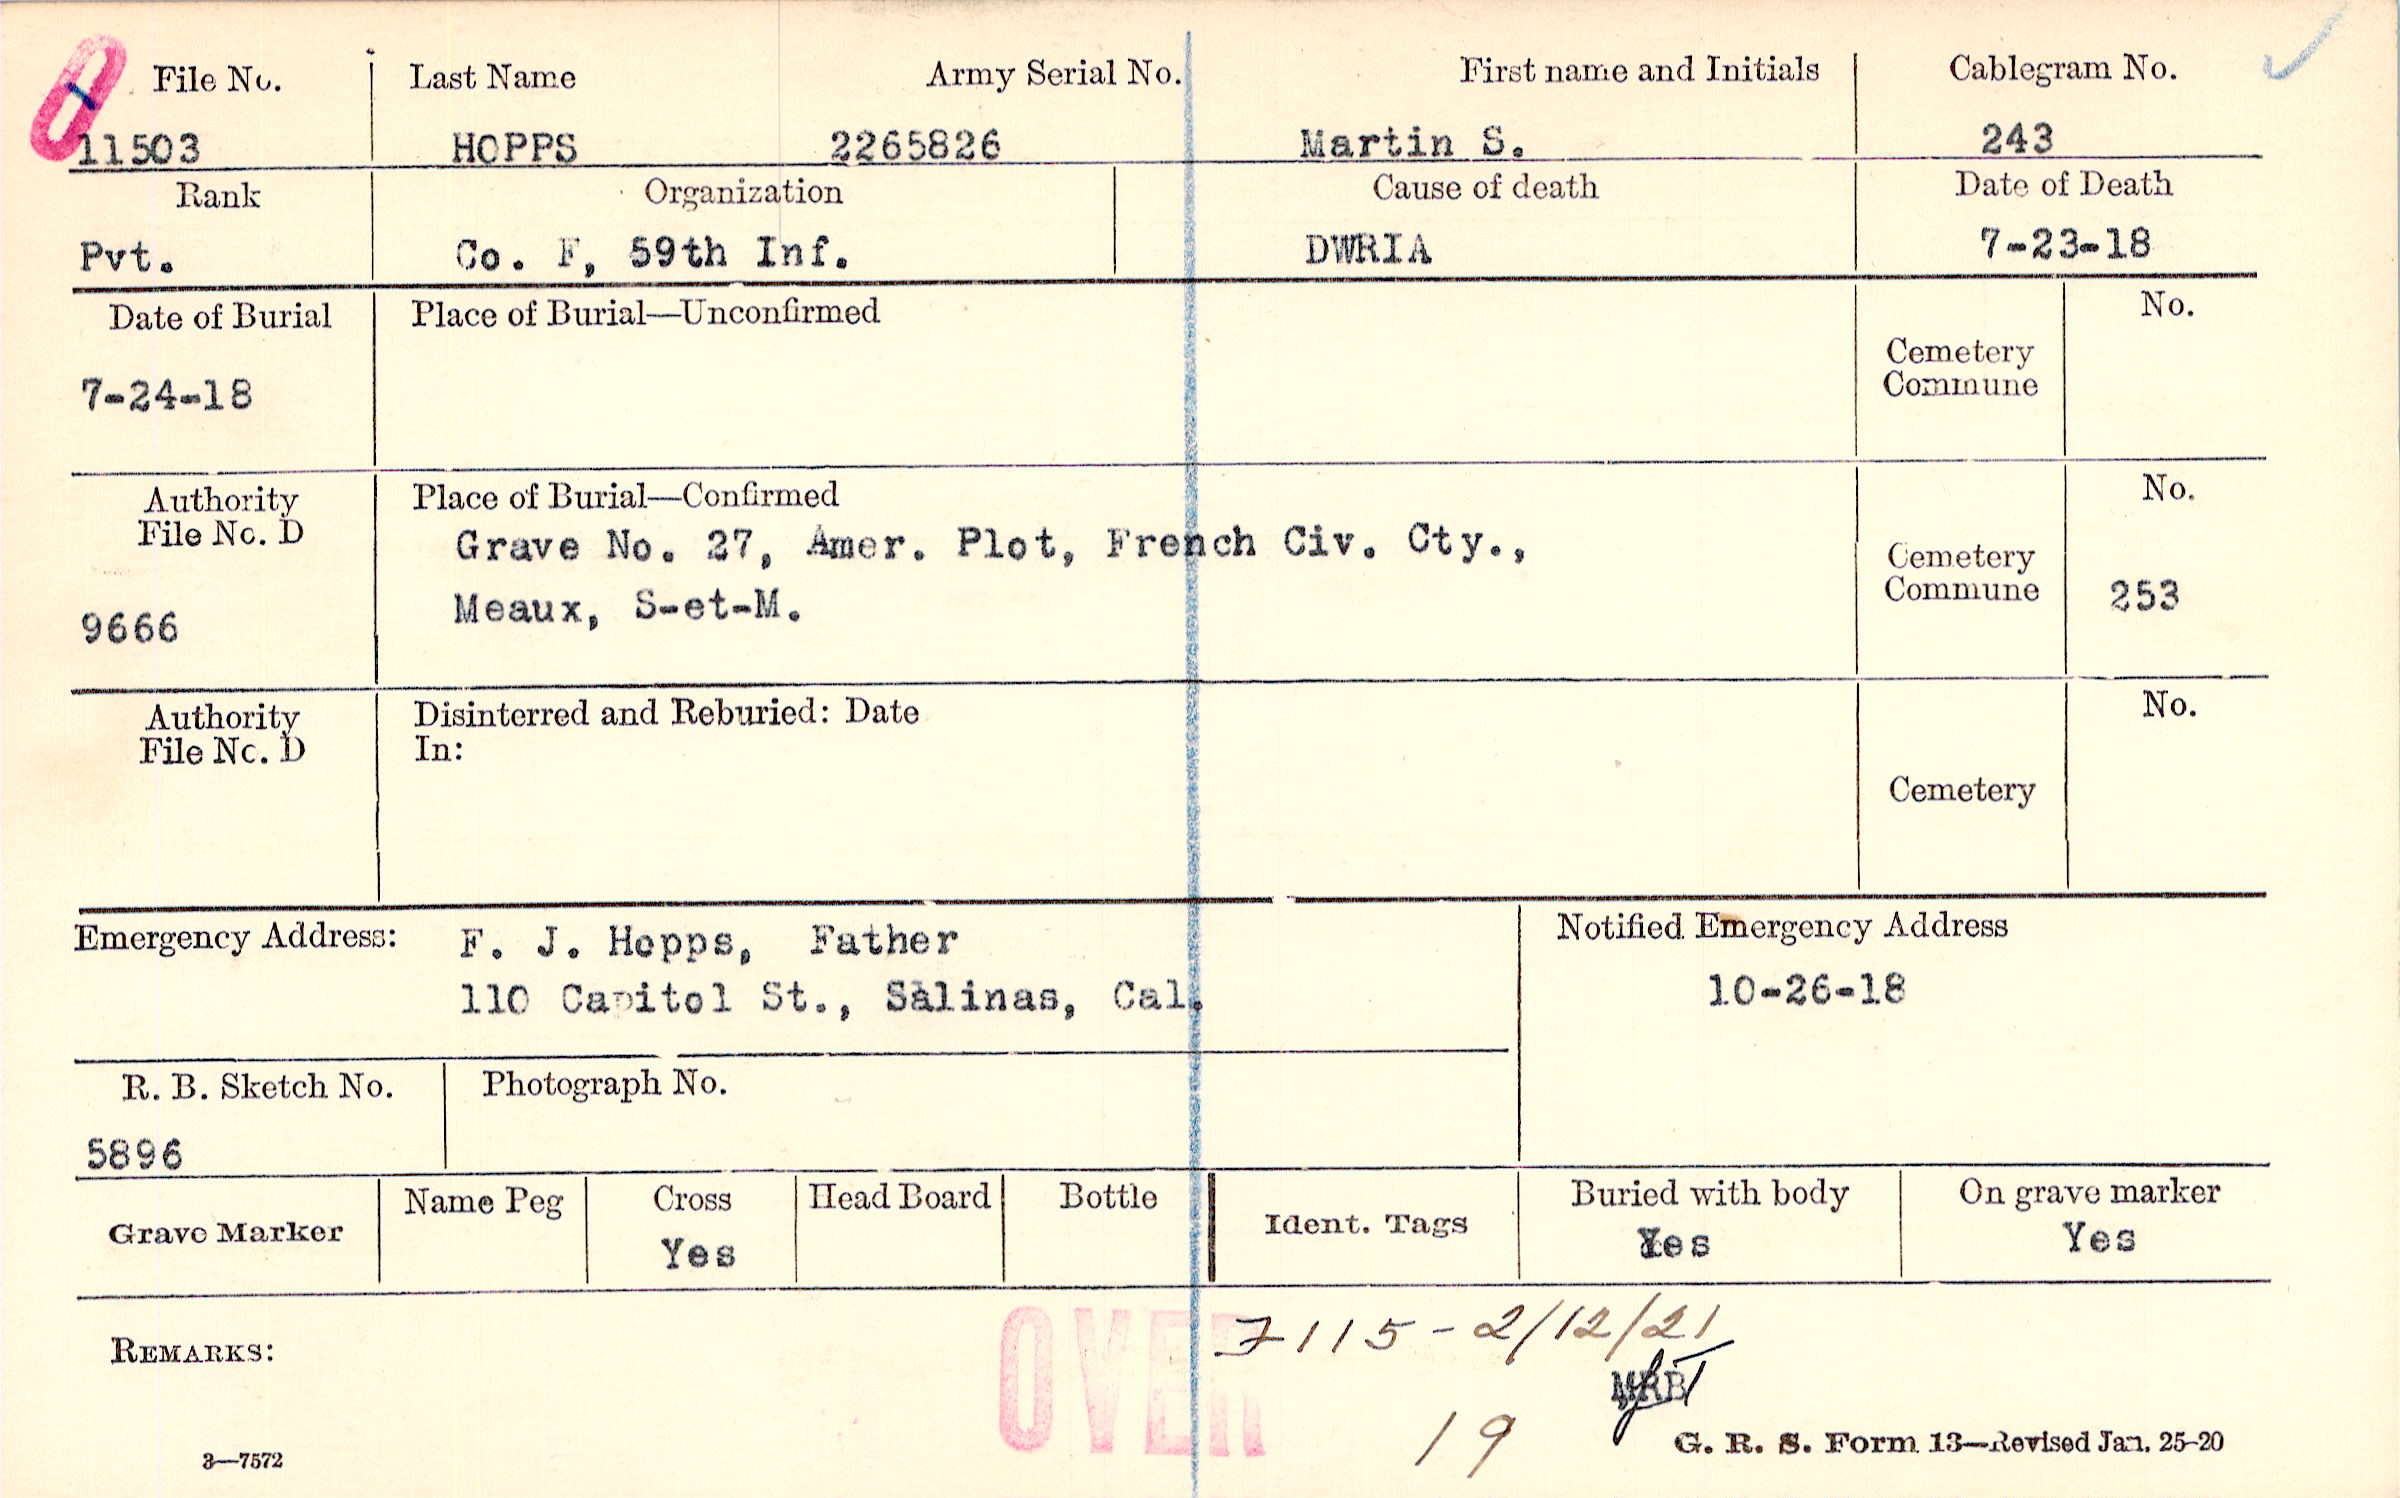 File No. Last Name Army Serial No. First name and Initials Cablegram No.
11503 HOPPS 2265826 Martin S. 243
Rank Organization Cause of death Date of Death
Pvt. Co. F, 59th Inf. DWRIA 7-23-18
Date of Burial Place of Burial—Unconfirmed No.
Cemetery
Commune
7-24-18
Authority Place of Burial—Confirmed No.
File No. D
Grave No. 27, Amer. Plot, French Civ. Cty.,
Cemetery
Commune 253
9666 Meaux, S-et-M.
Authority Disinterred and Reburied: Date No.
File No. D In:
Cemetery
Emergency Address: F. J. Hopps, Father Notified Emergency Address
110 Capitol St., Salinas, Cal. 10-26-18
R. B. Sketch No. Photograph No.
5896
Grave Marker Name Peg Cross Head Board Bottle Ident. Tags Buried with body On grave marker
Yes Yes Yes
OVER 7115 - 2/12/21
REMARKS: MRB
19
3—7572 G. R. S. Form 13—Revised Jan. 25-20